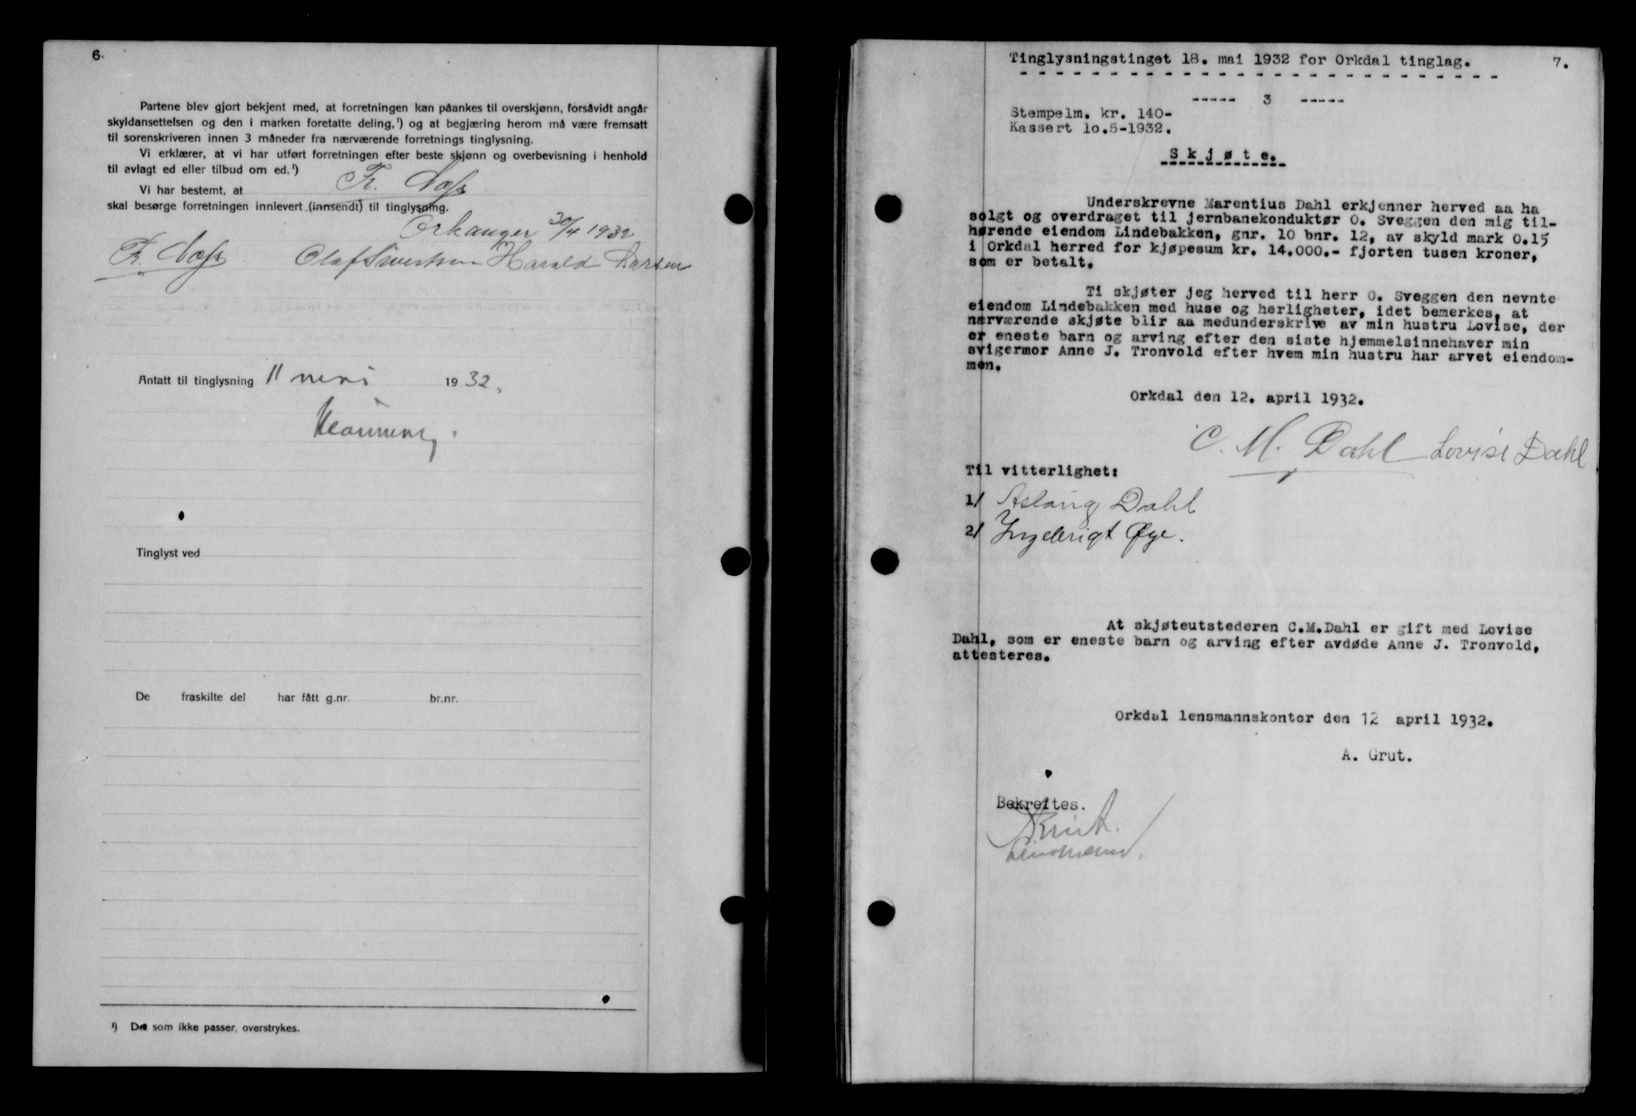 6.
Partene blev gjort bekjent med, at forretningen kan påankes til overskjønn, forsåvidt angår
skyldansettelsen og den i marken foretatte deling,¹) og at begjæring herom må være fremsatt
til sorenskriveren innen 3 måneder fra nærværende forretnings tinglysning.
Vi erklærer, at vi har utført forretningen efter beste skjønn og overbevisning i henhold
til avlagt ed eller tilbud om ed.¹)
Vi har bestemt, at Fr. Næss
skal besørge forretningen innlevert (innsendt) til tinglysning.
Orkanger 30/4 1932
Fr. Næss Olaf Sivertsen Harald Larsen
Antatt til tinglysning 11 mai 1932.
Tinglyst ved
De fraskilte del har fått g.nr. br.nr.
¹) Det som ikke passer, overstrykes.
Tinglysningstinget 18. mai 1932 for Orkdal tinglag. 7.
----- 3 -----
Stempelm. kr. 140-
Kassert 10.5-1932.
Skjøte.
Underskrevne Marentius Dahl erkjenner herved aa ha
solgt og overdraget til jernbanekonduktør O. Sveggen den mig til-
hørende eiendom Lindebakken, gnr. 10 bnr. 12, av skyld mark 0.15
i Orkdal herred for kjøpesum kr. 14.000.- fjorten tusen kroner,
som er betalt.
Ti skjøter jeg herved til herr O. Sveggen den nevnte
eiendom Lindebakken med huse og herligheter, idet bemerkes, at
nærværende skjøte blir aa medunderskrive av min hustru Lovise, der
er eneste barn og arving efter den siste hjemmelsinnehaver min
svigermor Anne J. Tronvold efter hvem min hustru har arvet eiendom-
men.
Orkdal den 12. april 1932.
C. M. Dahl Lovise Dahl
Til vitterlighet:
1/ Aslaug Dahl
2/ Ingebrigt Øye.
At skjøteutstederen C.M.Dahl er gift med Lovise
Dahl, som er eneste barn og arving efter avdøde Anne J. Tronvold,
attesteres.
Orkdal lensmannskontor den 12 april 1932.
A. Grut.
Bekreftes.
A Grut.
lensmann.